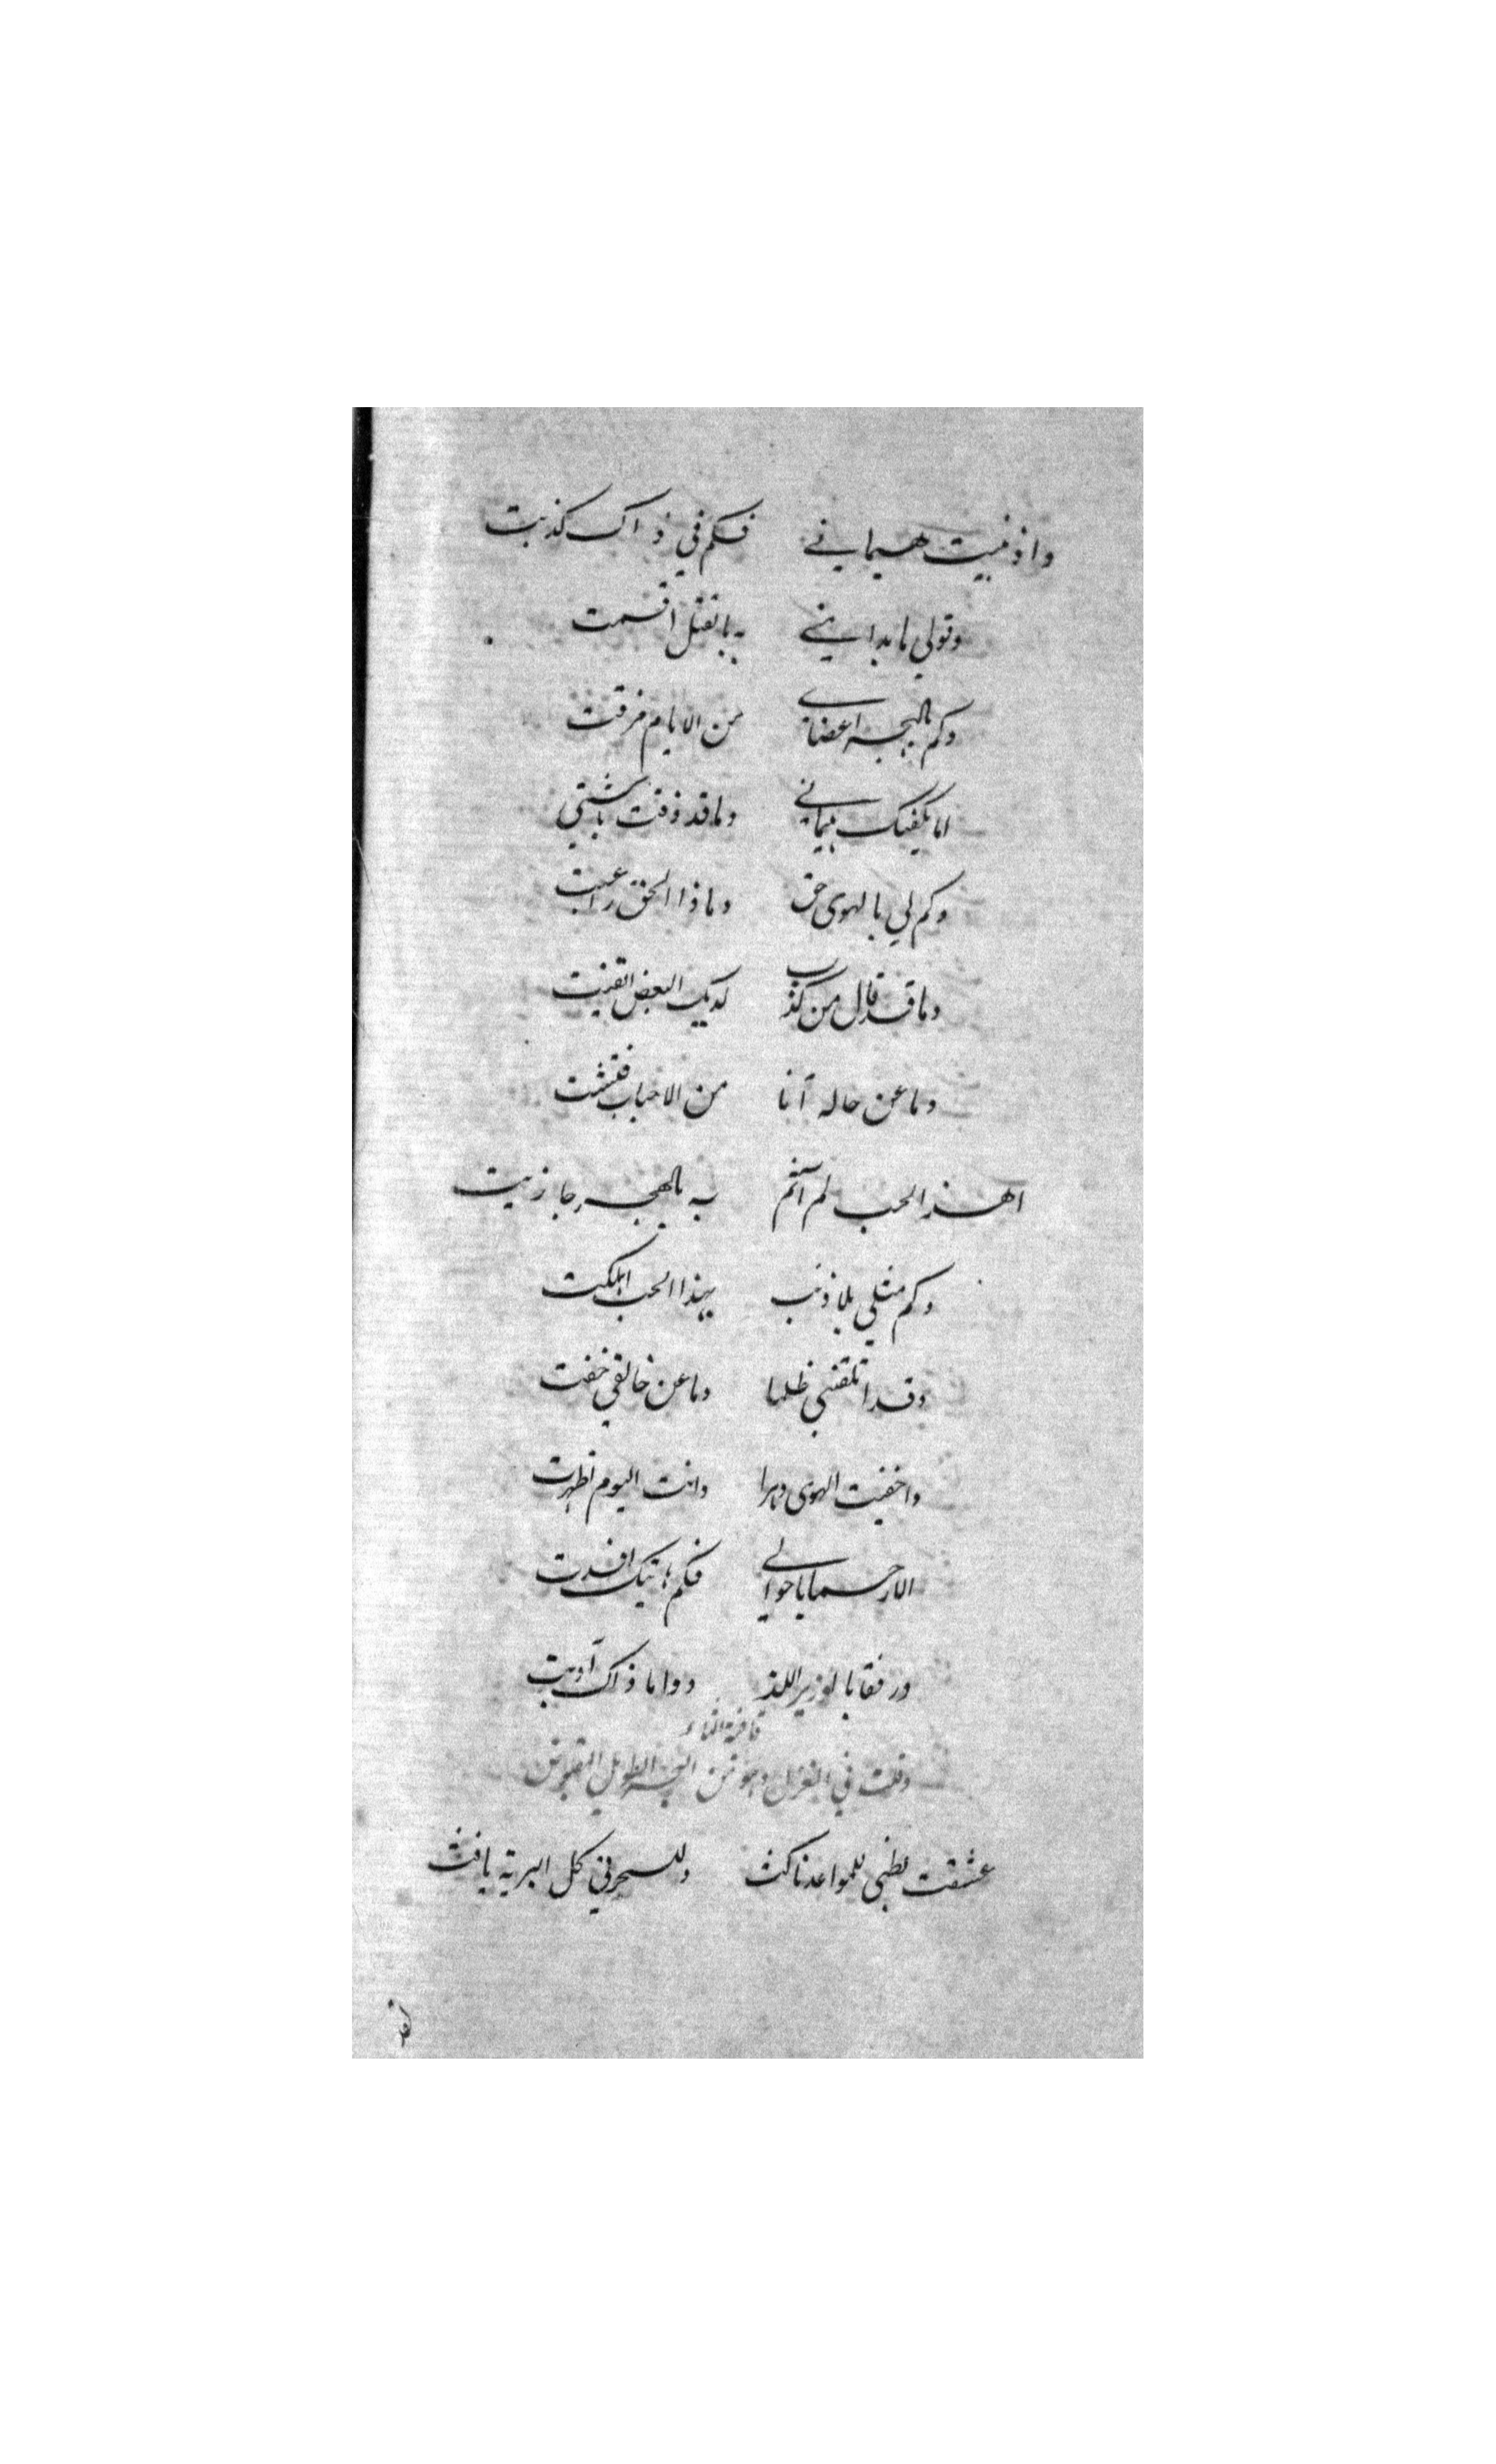 واذ فنيت هيماني فكم في ذاك كذبت
وقولي ما بدا مني به بالقتل اقسمت
وكم بالهجر اعضاي من الايام فرقت
اما يكفيك هيماني وما قد ذقت باشتي
وكم لي بالهوى حق وماذا الحق راعيت
وما قد قال من كذب لديك البعض اتقنت
وما عن حاله آنا من الاحباب فتشت
الهذا الحب لم آثم به بالهجر جازيت
وكم مثلي بلا ذنب بهذا الحب اهلكت
وقد اتلفتني ظلما وما عن خالقي خفت
واخفيت الهوى دهرا وانت اليوم اظهرت
الا رحما باحوالي فكم هاتيك افسدت
ورفقا بالوزير اللذ دواما ذاك آذيت
قافية الثاء
وقلت في الغزل وهو من البحر الطويل المقبوض
عشقت لظبي للمواعد ناكث وللسحر في كل البرية نافث